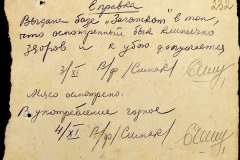 Справка 222
Выдана базе "Заготскот" в том,
что осмотренный бык клинически
здоров и к убою допускается
3/XI В/ф /Слипак/
Мясо осмотрено.
В употребление годное
4/XI В/ф /Слипак/